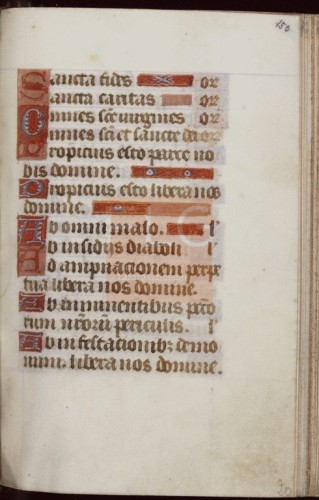 150
Sancta fides or
Sancta caritas or
Omnes scē virgines or
Omnes scī et sancte dei or
Propicius esto parce no
bis domine.
Propicius esto libera nos
domine.
Ab omni malo. l'
Ab insidiis diaboli l'
A dampnacionem perpe
tua libera nos domine.
Ab iminentibus pctō
rum nrōrū periculis. l'
Ab infestacionibꝫ demo
num. libera nos domine.